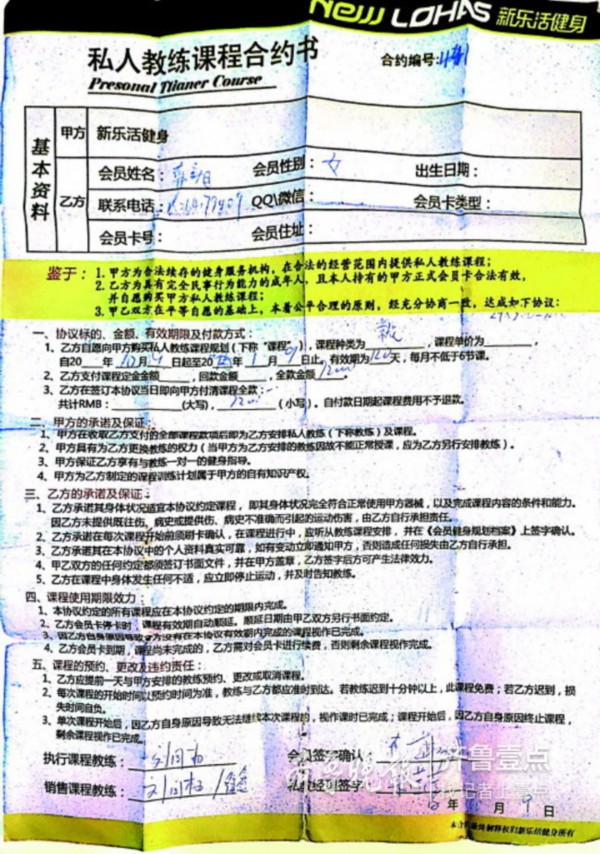 New LOHAS 新乐活健身
私人教练课程合约书
合约编号:
Presonal Tlianer Course
基本资料
甲方 新乐活健身
乙方
会员姓名: 会员性别: 女 出生日期:
联系电话: QQ\微信: 会员卡类型:
会员卡号: 会员住址:
鉴于:
1. 甲方为合法续存的健身服务机构,在合法的经营范围内提供私人教练课程;
2. 乙方为具有完全民事行为能力的成年人,且本人持有的甲方正式会员卡合法有效,
并自愿购买甲方私人教练课程;
3. 甲乙双方在平等自愿的基础上,本着公平合理的原则,经充分协商一致,达成如下协议:
一、协议标的、金额、有效期限及付款方式:
1、乙方自愿向甲方购买私人教练课程规划(下称“课程”),课程种类为 ,课程单价为 ,
自20 年 12月 日起至20 年 1月 日止。有效期为120天,每月不低于6节课。
2、乙方支付课程定金金额 ,回款金额 ,全款金额 。
3、乙方在签订本协议当日即向甲方付清课程全款:
共计RMB: (大写), (小写)。自付款日期起课程费用不予退款。
二、甲方的承诺及保证:
1、甲方在收取乙方支付的全部课程款项后即为乙方安排私人教练(下称教练)及课程。
2、甲方具有为乙方更换教练的权力(当甲方为乙方安排的教练因故不能正常授课,应为乙方另行安排教练)。
3、甲方保证乙方享有与教练一对一的健身指导。
4、甲方为乙方制定的课程训练计划属于甲方的自有知识产权。
三、乙方的承诺及保证:
1、乙方承诺其身体状况适宜本协议约定课程,即其身体状况完全符合正常使用甲方器械,以及完成课程内容的条件和能力。
因乙方未提供既往伤、病史或提供伤、病史不准确而引起的运动伤害,由乙方自行承担责任。
2、乙方承诺在每次课程开始前须刷卡确认,在课程进行中,应听从教练课程安排,并在《会员健身规划档案》上签字确认。
3、乙方承诺其在本协议中的个人资料真实可靠,如有变动立即通知甲方,否则造成任何损失由乙方自行承担。
4、甲乙双方的任何约定都须签订书面文件,并在甲方盖章,乙方签字后方可产生法律效力。
5、乙方在课程中身体发生任何不适,应立即停止运动,并及时告知教练。
四、课程使用期限效力:
1、本协议约定的所有课程应在本协议约定的期限内完成。
2、乙方会员卡停卡时,课程有效期自动顺延。顺延日期由甲乙双方另行书面约定。
3、因乙方自身原因导致 没有在本协议有效期内完成的课程视作已完成。
4、乙方会员卡到期,课程尚未完成的,乙方需对会员卡进行续费,否则剩余课程视作完成。
五、课程的预约、更改及违约责任:
1、乙方应提前一天与甲方安排的教练预约、更改或取消课程。
2、每次课程的开始时间以预约时间为准,教练与乙方都应准时到达。若教练迟到十分钟以上,此课程免费;若乙方迟到,损
失时间自负。
3、单次课程开始后,因乙方自身原因导致无法继续本次课程的,视作课时已完成;课程开始后,因乙方自身原因终止课程,
剩余课程视作已完成。
执行课程教练: 会员签字确认:
销售课程教练: 私教经理签字:
年 月 9日
本合约最终解释权归新乐活健身所有
齐鲁壹点